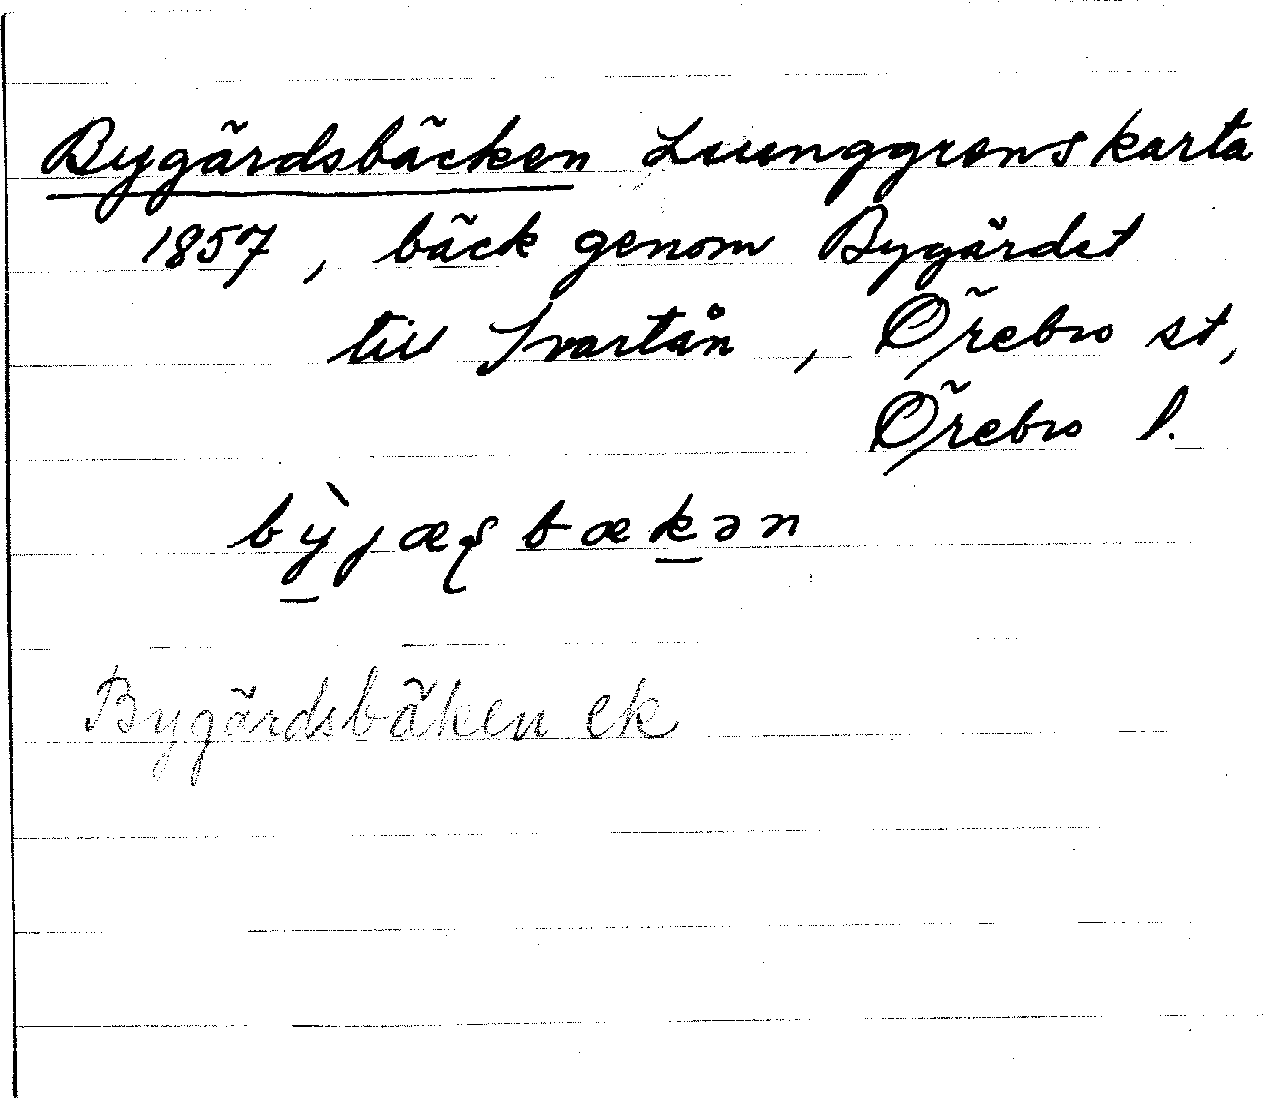 Bygärdsbäcken Luunggrens karta
1857, bäck genom Bygärdet
till Svartån, Örebro st,
Örebro l.
bỳ̲jæʂbæk̲ən
Bygärdsbäken ek